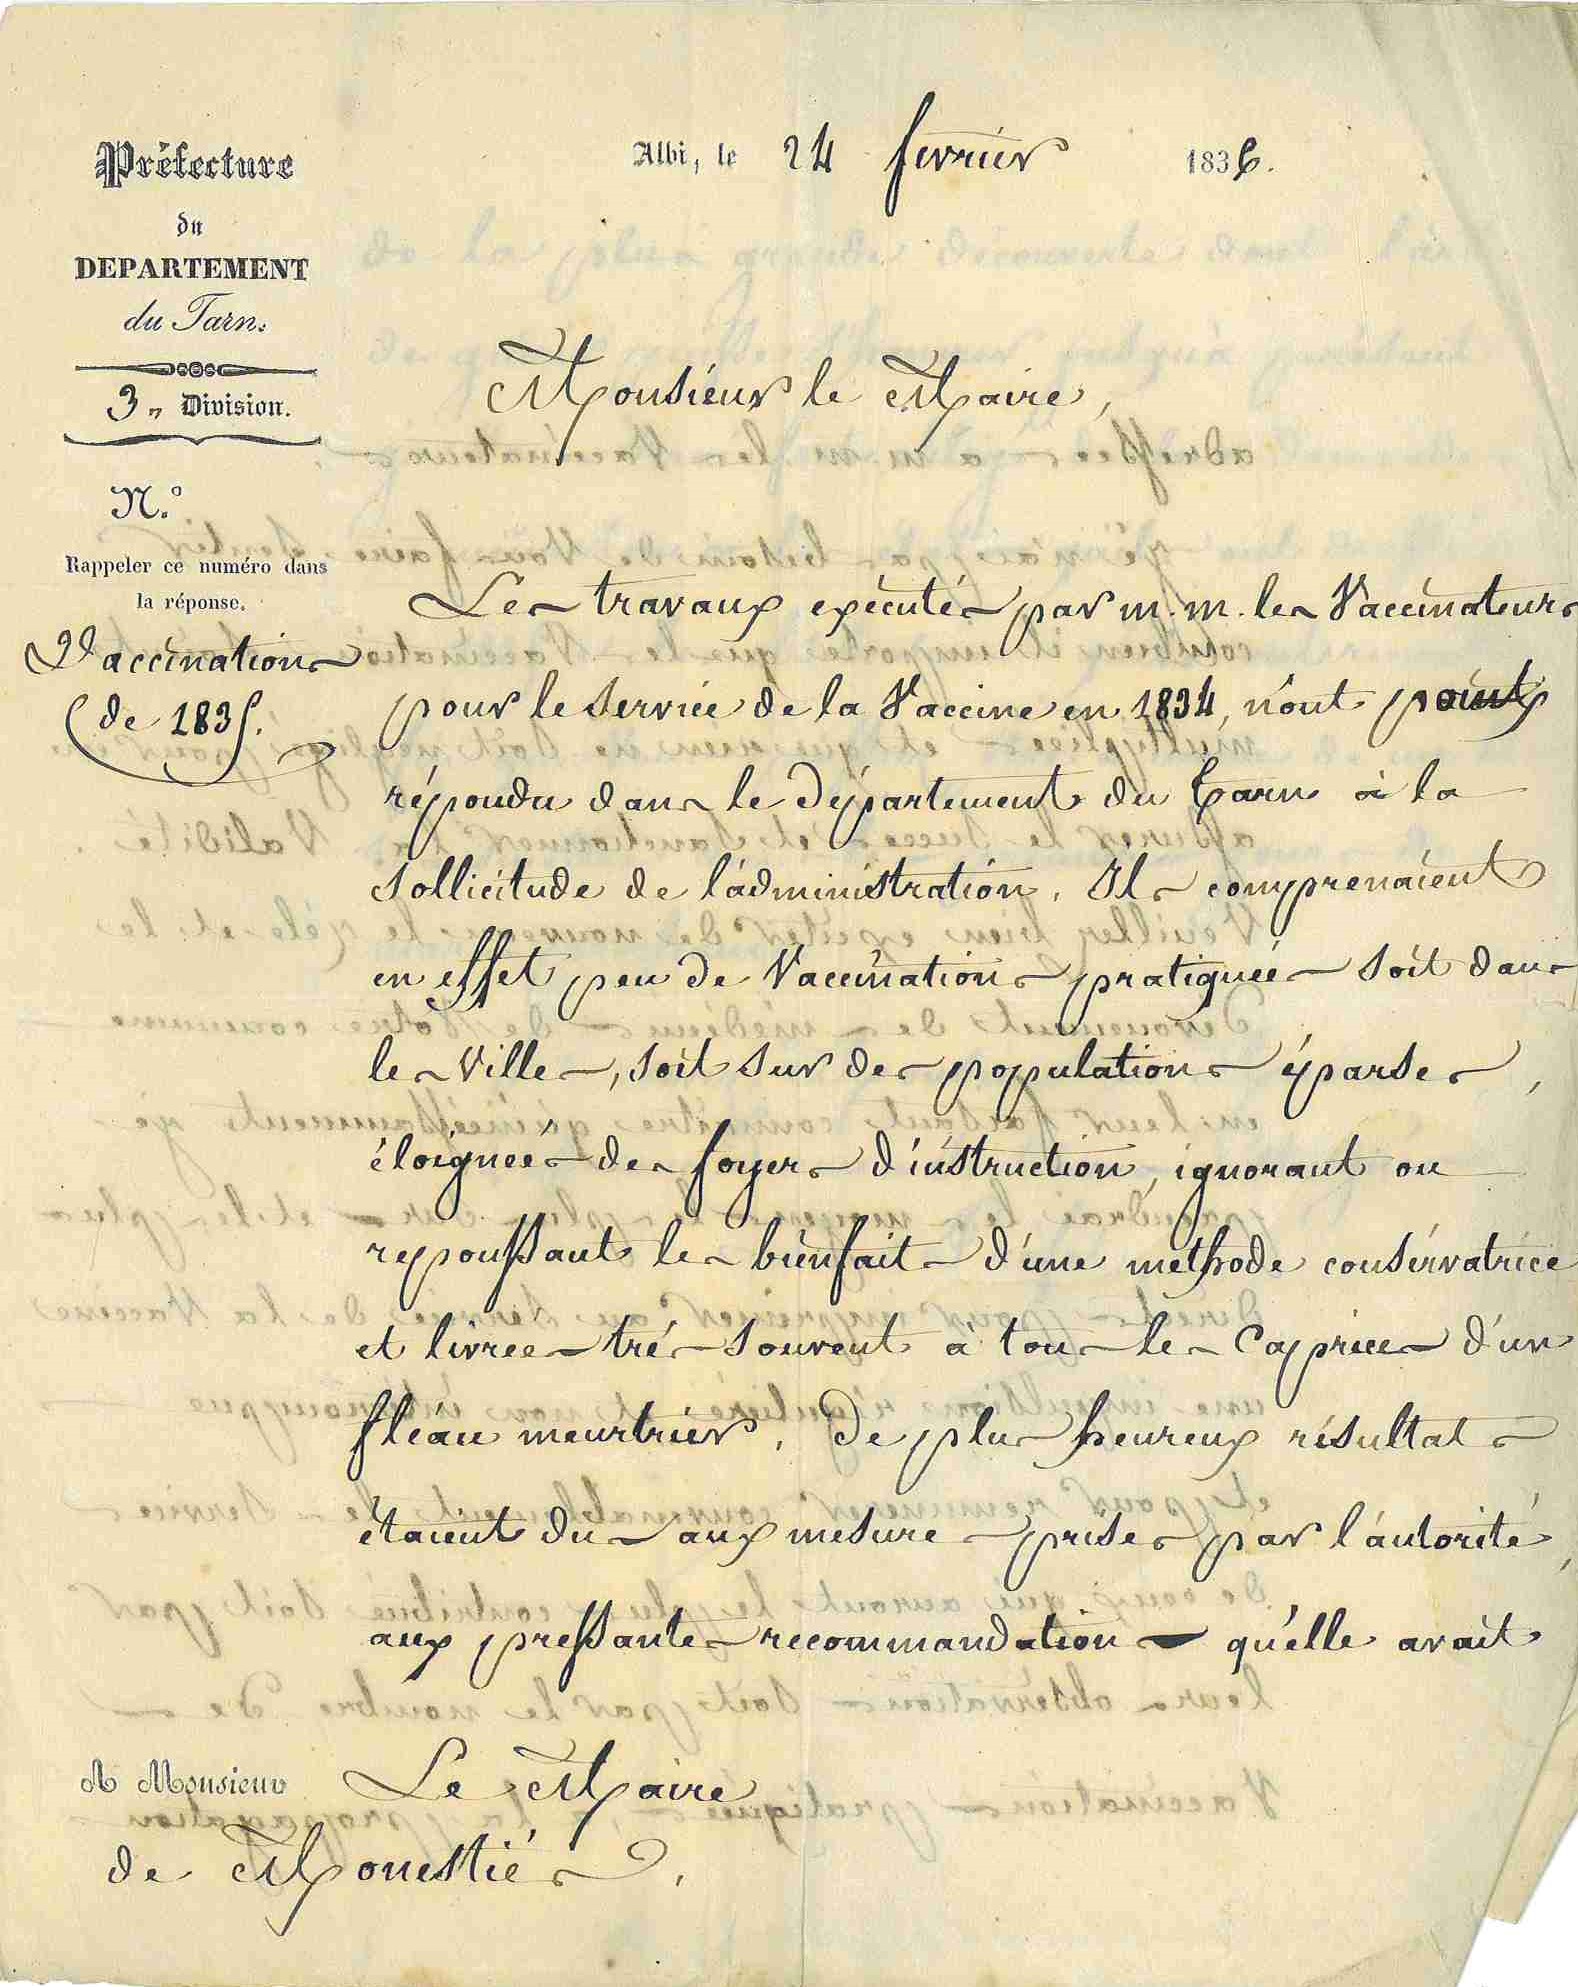 Préfecture
du
DEPARTEMENT
du Tarn.
3e Division.
N.°
Rappeler ce numéro dans
la réponse.
Vaccinations
de 1835.
Albi, le 24 fevrier 1836.
Monsieur le Maire,
Les travaux exécutés par m.m. les Vaccinateurs
pour le service de la Vaccine en 1834, n'ont point
répondu dans le Département du Tarn à la
sollicitude de l'administration. Ils comprenaient
en effet peu de Vaccinations pratiquées soit dans
les Villes, soit sur des populations éparses,
éloignées des foyers d'instruction, ignorant ou
repoussant les bienfaits d'une methode conservatrice
et livrées très souvent à tous les Caprices d'un
fléau meurtrier. De plus heureux résultats
étaient dus aux mesures prises par l'autorité,
aux pressantes recommandations qu'elle avait
A Monsieur Le Maire
de Monestiés.